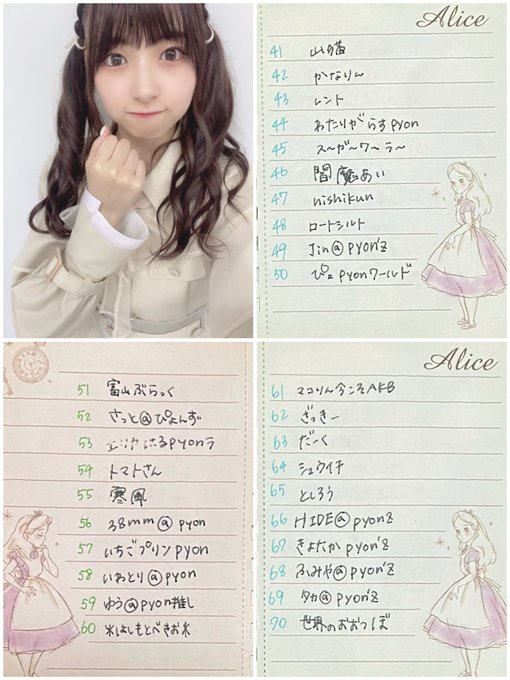 Alice
41 山の猫
42 かなりん
43 レント
44 わたりがらすpyon
45 ス〜ガ〜ワ〜ラ〜
46 閻魔あい
47 nishikun
48 ロートシルト
49 Jin@pyon'z
50 ぴょpyonワールド
51 富山ぶらっく
52 さっと@ぴょんず
53 はるpyonラ
54 トマトさん
55 寒風
56 38mm@pyon
57 いちごプリンpyon
58 いわとり@pyon
59 ゆう@pyon推し
60
Alice
61 マコりん今こそAKB
62 ざっきー
63 だーく
64 シュウイチ
65 としろう
66 HIDE@pyon'z
67 きよたか pyon'z
68 ふみや@pyon'z
69 タカ@pyon'z
70 世界のおおつぼ